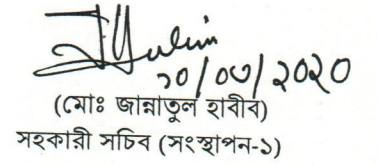 ১০/০৩/২০২০
(মোঃ জান্নাতুল হাবীব)
সহকারী সচিব (সংস্থাপন-১)